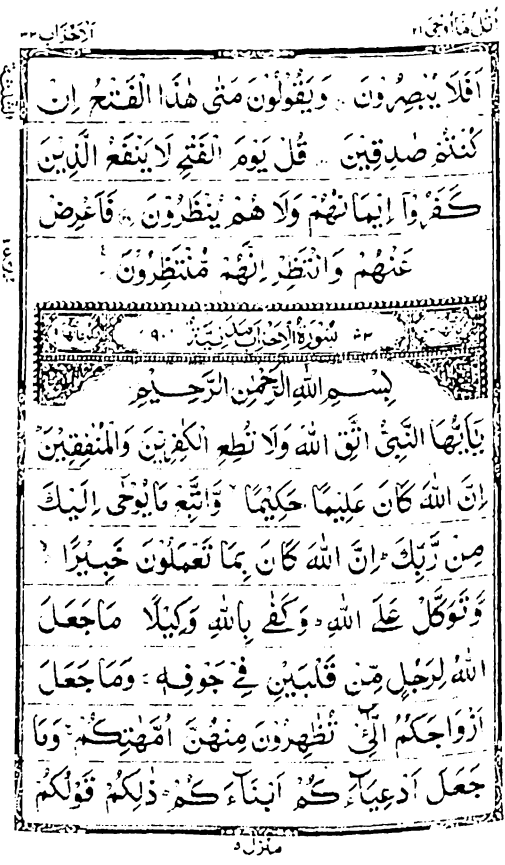 اتل ما اوحی ۲۱
الاحزاب ۳۳
اَفَلَا يُبْصِرُوْنَ وَيَقُوْلُوْنَ مَتٰى هٰذَا الْفَتْحُ اِنْ
كُنْتُمْ صٰدِقِيْنَ قُلْ يَوْمَ الْفَتْحِ لَا يَنْفَعُ الَّذِيْنَ
كَفَرُوْۤا اِيْمَانُهُمْ وَلَا هُمْ يُنْظَرُوْنَ فَاَعْرِضْ
عَنْهُمْ وَانْتَظِرْ اِنَّهُمْ مُّنْتَظِرُوْنَ
۳۳ سُوْرَةُ الْاَحْزَابِ مَدَنِيَّةٌ ۹۰
بِسْمِ اللّٰهِ الرَّحْمٰنِ الرَّحِيْمِ
يٰۤاَيُّهَا النَّبِىُّ اتَّقِ اللّٰهَ وَلَا تُطِعِ الْكٰفِرِيْنَ وَالْمُنٰفِقِيْنَ
اِنَّ اللّٰهَ كَانَ عَلِيْمًا حَكِيْمًا وَّاتَّبِعْ مَا يُوْحٰۤى اِلَيْكَ
مِنْ رَّبِّكَ اِنَّ اللّٰهَ كَانَ بِمَا تَعْمَلُوْنَ خَبِيْرًا
وَّتَوَكَّلْ عَلَى اللّٰهِ وَكَفٰى بِاللّٰهِ وَكِيْلًا مَا جَعَلَ
اللّٰهُ لِرَجُلٍ مِّنْ قَلْبَيْنِ فِىْ جَوْفِهٖ وَمَا جَعَلَ
اَزْوَاجَكُمُ الّٰٓـِٔىْ تُظٰهِرُوْنَ مِنْهُنَّ اُمَّهٰتِكُمْ وَمَا
جَعَلَ اَدْعِيَآءَكُمْ اَبْنَآءَكُمْ ذٰلِكُمْ قَوْلُكُمْ
منزل ۵